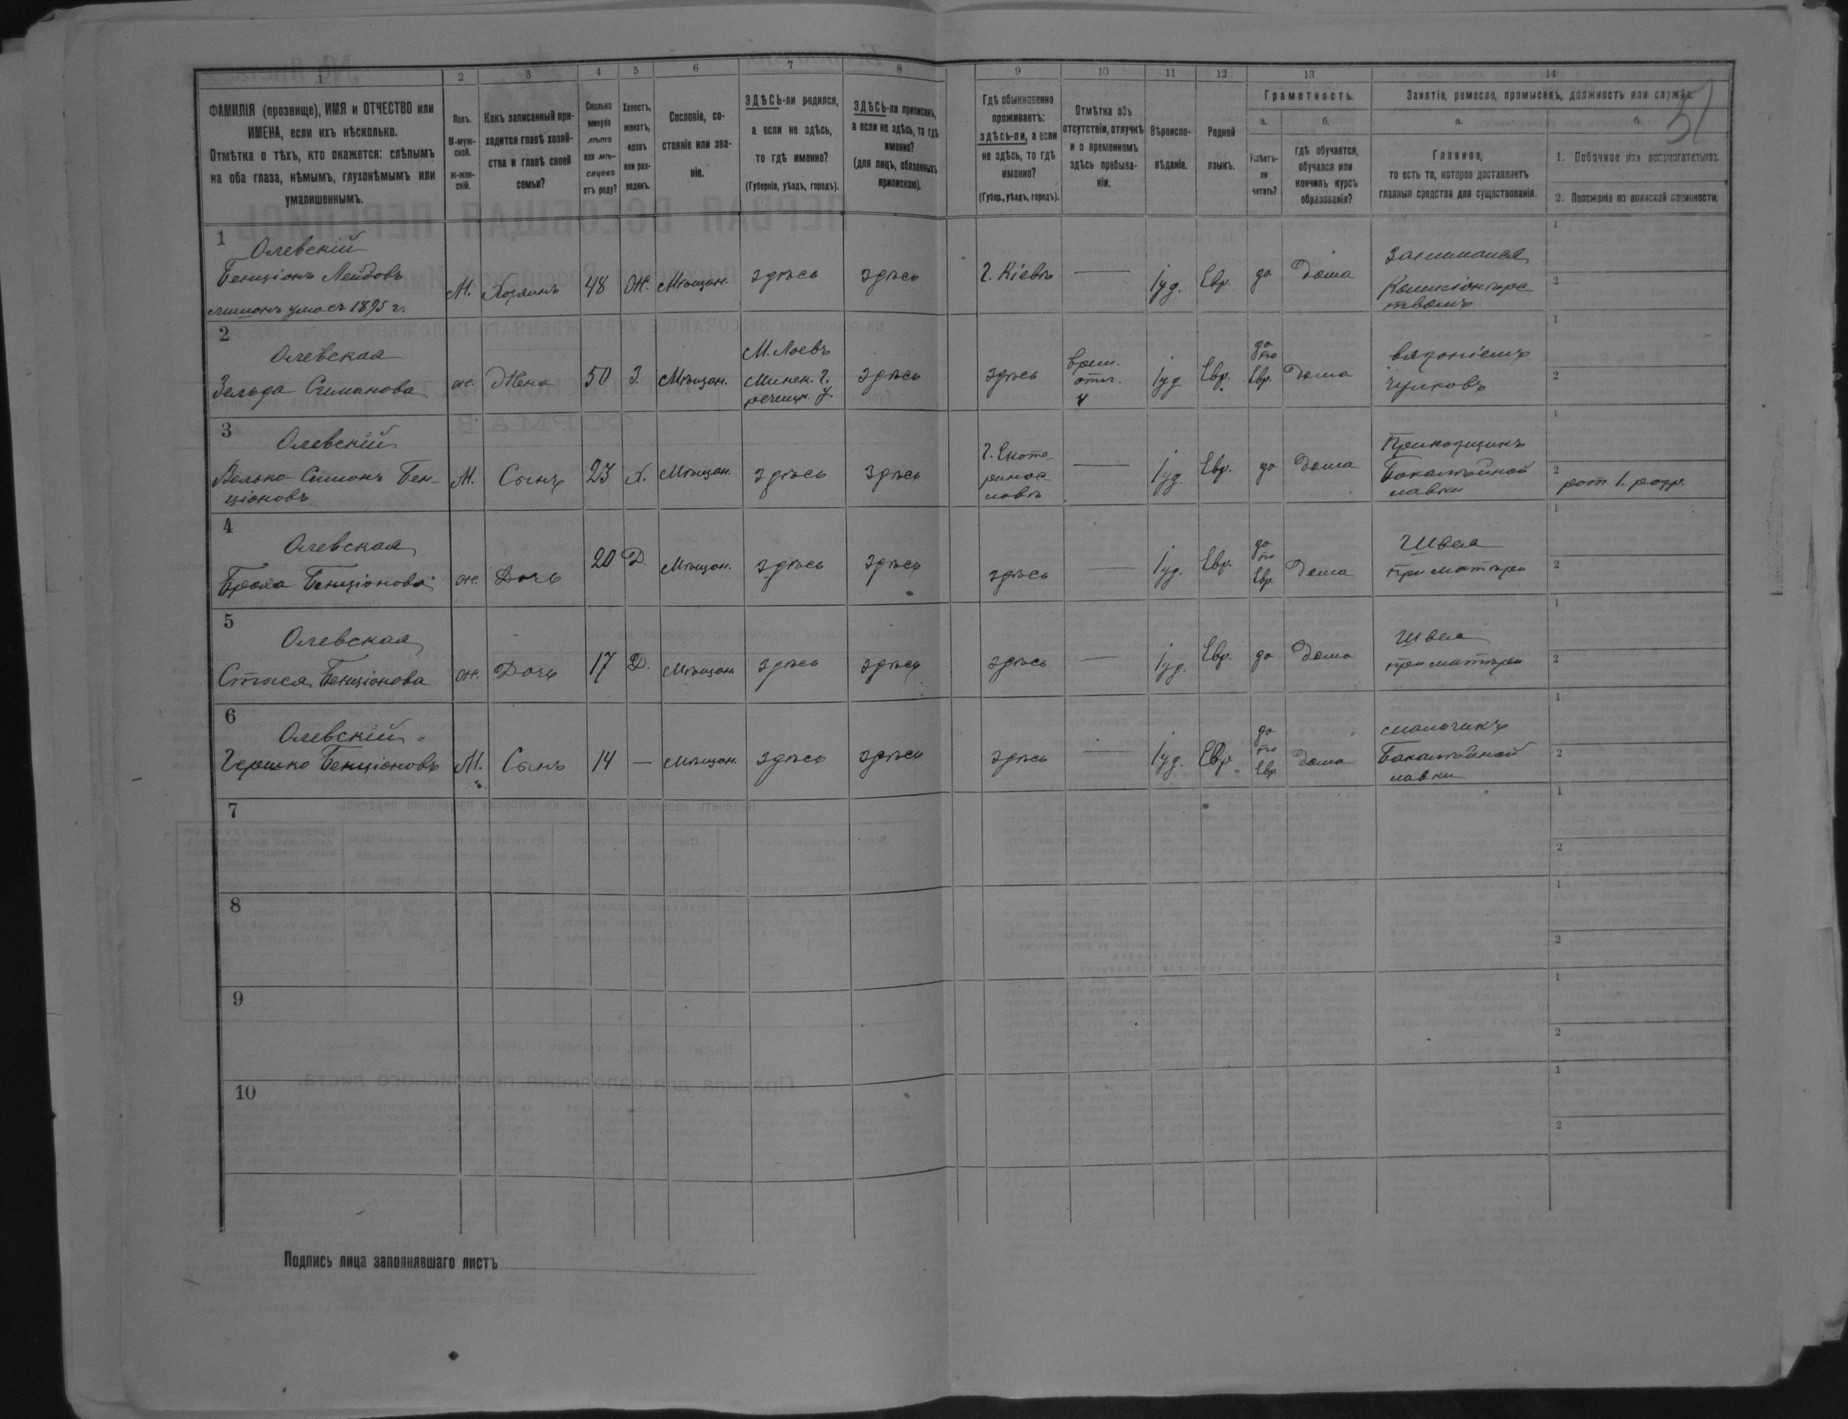 1 2 3 4 5 6 7 8 9 10 11 12 13 14
ФАМИЛІЯ (прозвище), ИМЯ и ОТЧЕСТВО или
ИМЕНА, если ихъ нѣсколько.
Отмѣтка о тѣхъ, кто окажется: слѣпымъ
на оба глаза, нѣмымъ, глухонѣмымъ или
умалишеннымъ.
Полъ.
М-муж-
ской.
ж-жен-
скій.
Какъ записанный при-
ходится главѣ хозяй-
ства и главѣ своей
семьи?
Сколько
минуло
лѣтъ
или мѣ-
сяцевъ
отъ роду?
Холостъ,
женатъ,
вдовъ
или раз-
веденъ.
Сословіе, со-
стояніе или зва-
ніе.
ЗДѢСЬ-ли родился,
а если не здѣсь,
то гдѣ именно?
(Губернія, уѣздъ, городъ).
ЗДѢСЬ-ли приписанъ,
а если не здѣсь, то гдѣ
именно?
(для лицъ, обязанныхъ
припискою).
Гдѣ обыкновенно
проживаетъ:
здѣсь-ли, а если
не здѣсь, то гдѣ
именно?
(Губер., уѣздъ, городъ).
Отмѣтка объ
отсутствіи, отлучкѣ
и о временномъ
здѣсь пребыва-
ніи.
Вѣроиспо-
вѣданіе.
Родной
языкъ.
Грамотность.
а.
Умѣетъ-
ли
читать?
б.
гдѣ обучается,
обучался или
кончилъ курсъ
образованія?
Занятіе, ремесло, промыселъ, должность или служба.
а.
Главное,
то есть то, которое доставляетъ
главныя средства для существованія.
б.
1. Побочное или вспомогательное.
2. Положеніе по воинской повинности.
1
Олевскій
Бенціонъ Лейбовъ
лишонъ ума съ 1895 г.
М. Хозяинъ 48 Ж. Мѣщан. здѣсь здѣсь г. Кіевъ — Іуд. Евр. да Дома
Занимался
Комиссіонера
твомъ
1
2
2
Олевская
Зельда Симанова
ж. Жена 50 З. Мѣщан.
М. Лоевъ
Минск. г.
речицк. у.
здѣсь здѣсь
врем.
отл.
Іуд Евр.
да
по
Евр.
Дома
вязаніемъ
чулковъ
1
2
3
Олевскій
Волько-Симонъ Бен-
ціоновъ
М. Сынъ 23 Х. Мѣщан. здѣсь здѣсь
г. Екате-
ринос-
лавъ
— Іуд. Евр. да Дома
Прикащикъ
Бакалѣйной
лавки
1
2
рат 1. разр.
4
Олевская
Бенціонова
ж. Дочь 20 Д. Мѣщан. здѣсь здѣсь здѣсь — Іуд. Евр.
да
по
Евр.
Дома
Швея
при матери
1
2
5
Олевская
Стыся Бенціонова
ж. Дочь 17 Д. Мѣщан. здѣсь здѣсь здѣсь — Іуд. Евр. да Дома
Швея
при матери
1
2
6
Олевскій
Гершко Бенціоновъ
М. Сынъ 14 — Мѣщан. здѣсь здѣсь здѣсь — Іуд. Евр.
да
по
Евр
Дома
мальчикъ
Бакалѣйной
лавки
1
2
7
1
2
8
1
2
9
1
2
10
1
2
Подпись лица заполнявшаго листъ